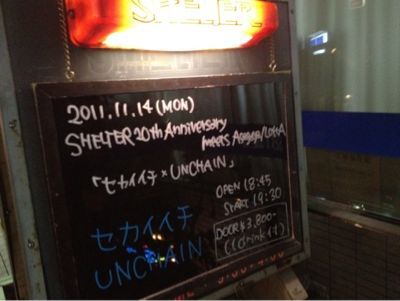 SHELTER
2011.11.14(MON)
SHELTER 20th Anniversary
meets Asagaya/LOFT A
「セカイイチ × UNCHAIN」
OPEN 18:45
START 19:30
セカイイチ
UNCHAIN
DOOR ¥3,800-
(1drink付)